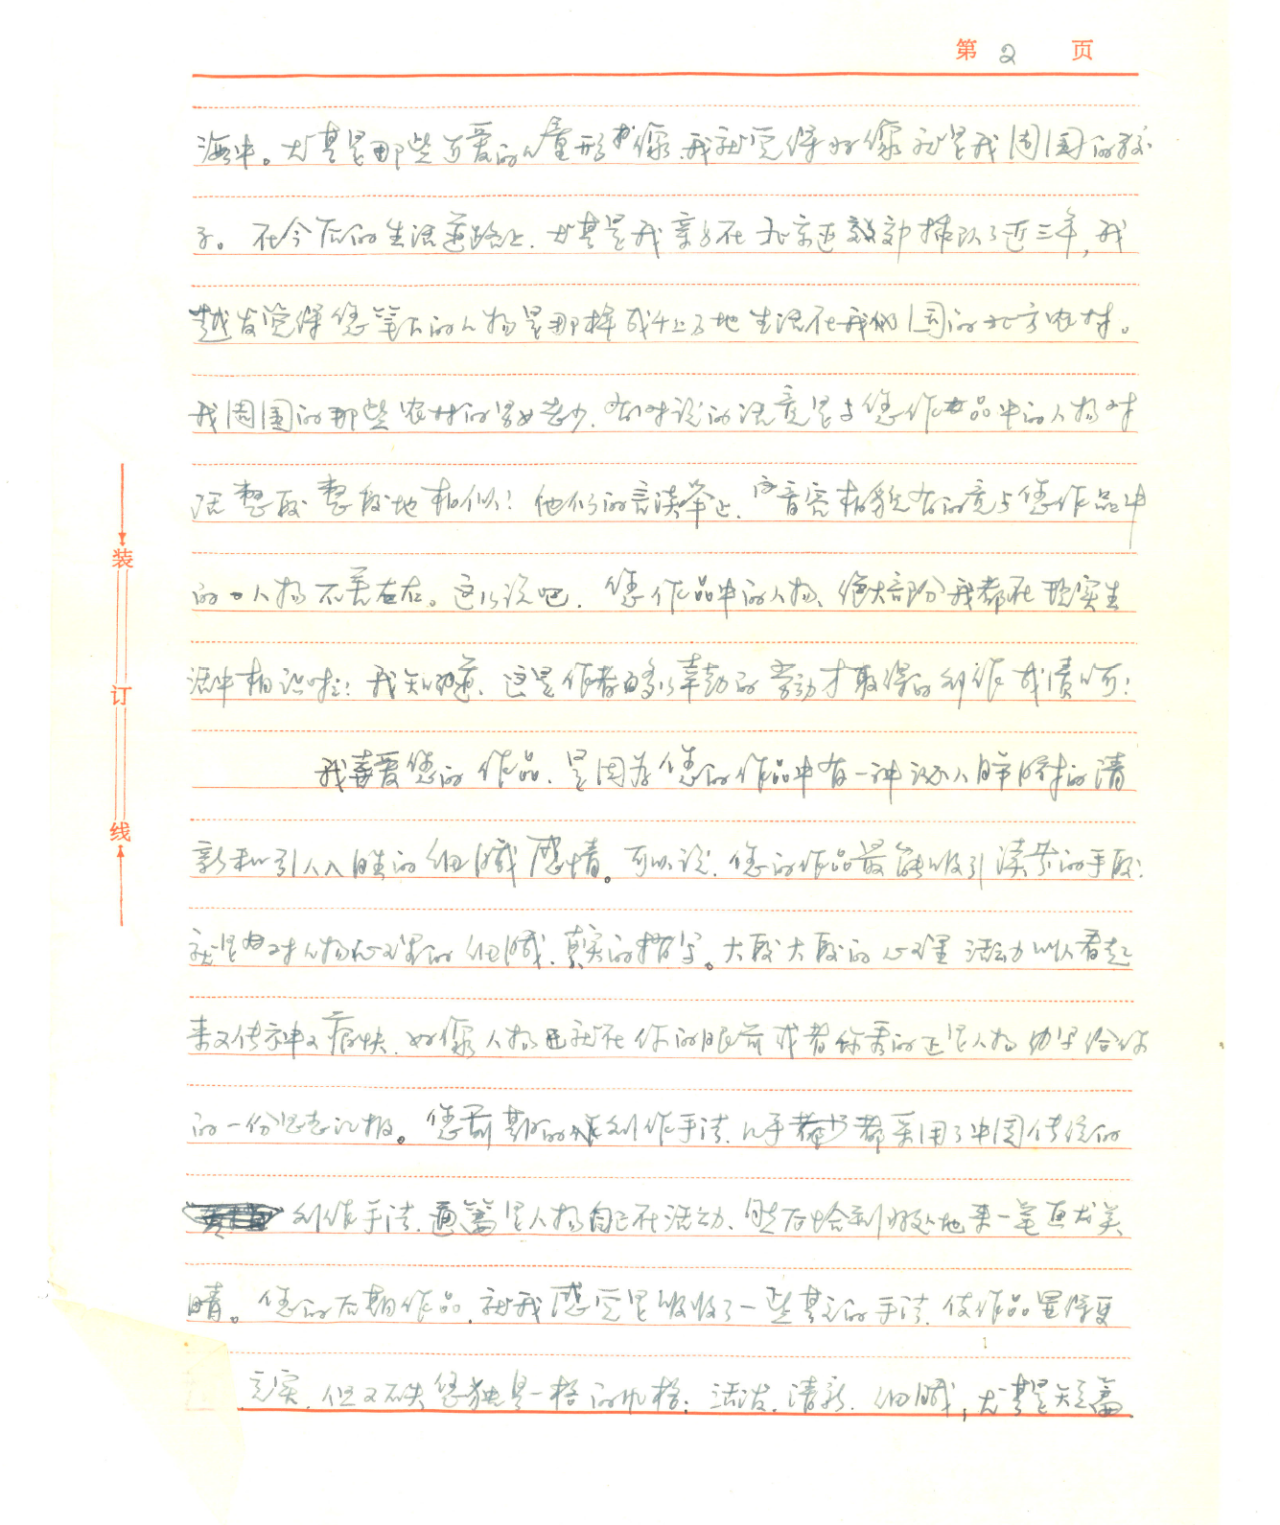 第 2 页
海中。尤其是那些可爱的儿童形象,我就觉得好像就是我周围的孩
子。在今后的生活道路上,尤其是我亲身在北京近郊插队了近三年,我
越发觉得您笔下的人物是那样成千上万地生活在我们国的北方农村。
我周围的那些农村的男女老少,有时说的话竟是与您作品中的人物对
话整段整段地相似!他们的言谈举止,音容相貌有的竟与您作品中
的人物不差左右。这么说吧,您作品中的人物,绝大部份我都在现实生
活中相识啦!我知道,这是作者多么辛勤的劳动才取得的创作成绩呵!
我喜爱您的作品,是因为您的作品中有一种逐人的清
新和引人入胜的细腻感情。可以说,您的作品最能吸引读者的手段:
就是对人物心理的细腻、真实的描写。大段大段的心理活动叫人看起
来又传神又痛快,好像人物就在你的眼前或者你看的正是人物份给你
的一份思想汇报。您前期的创作手法,几乎都采用了中国传统的
创作手法,通篇是人物自己在活动,然后恰到好处地来一笔画龙点
睛。您的后期作品,就我感觉是吸收了一些其它的手法,使作品显得更
充实,但又不失您独具一格的风格:活泼、清新、细腻,尤其是短篇
装
订
线